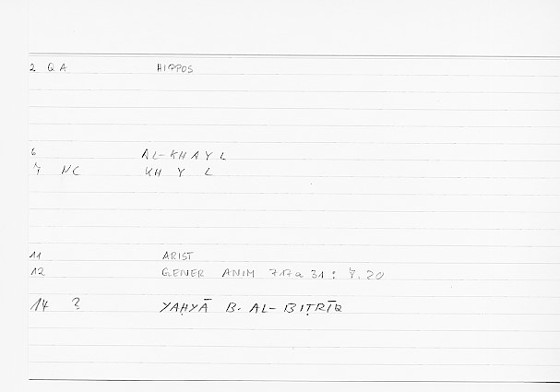 2 QA HIPPOS
6 AL-KHAYL
7 NC KHYL
11 ARIST
12 GENER ANIM 717a 31 : 8.20
14 ? YAḤYĀ B. AL-BIṬRĪQ